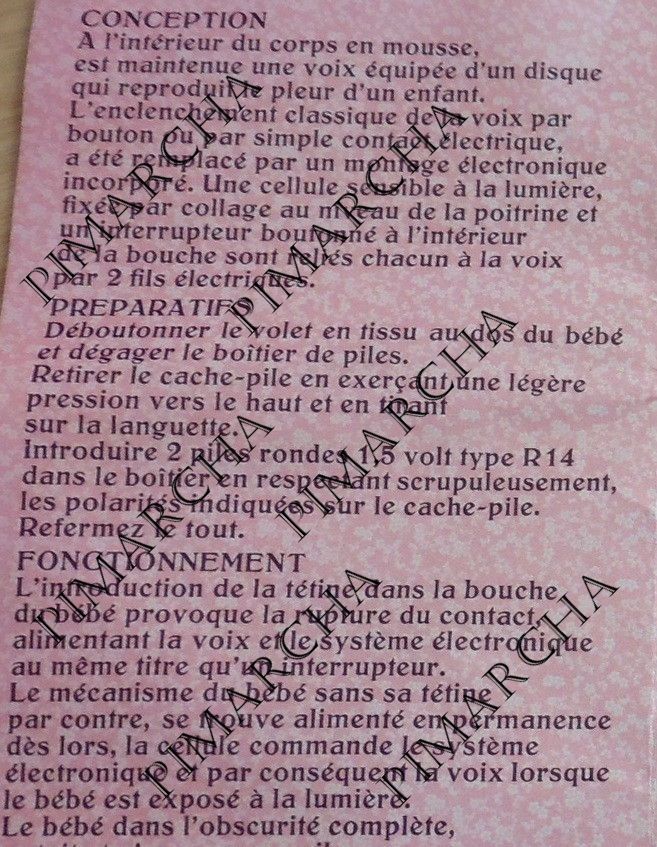 CONCEPTION
A l'intérieur du corps en mousse,
est maintenue une voix équipée d'un disque
qui reproduit le pleur d'un enfant.
L'enclenchement classique de la voix par
bouton ou par simple contact électrique,
a été remplacé par un montage électronique
incorporé. Une cellule sensible à la lumière,
fixée par collage au niveau de la poitrine et
un interrupteur boutonné à l'intérieur
de la bouche sont reliés chacun à la voix
par 2 fils électriques.
PREPARATIFS
Déboutonner le volet en tissu au dos du bébé
et dégager le boîtier de piles.
Retirer le cache-pile en exerçant une légère
pression vers le haut et en tirant
sur la languette.
Introduire 2 piles rondes 1,5 volt type R14
dans le boîtier en respectant scrupuleusement,
les polarités indiquées sur le cache-pile.
Refermez le tout.
FONCTIONNEMENT
L'introduction de la tétine dans la bouche
du bébé provoque la rupture du contact,
alimentant la voix et le système électronique
au même titre qu'un interrupteur.
Le mécanisme du bébé sans sa tétine
par contre, se trouve alimenté en permanence
dès lors, la cellule commande le système
électronique et par conséquent la voix lorsque
le bébé est exposé à la lumière.
Le bébé dans l'obscurité complète,
PIMARCHA
PIMARCHA
PIMARCHA
PIMARCHA
PIMARCHA
PIMARCHA
PIMARCHA